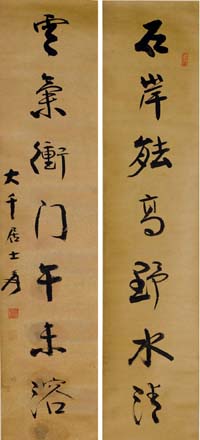 石岸能高野水清
雲氣衝門午未溶
大千居士爰